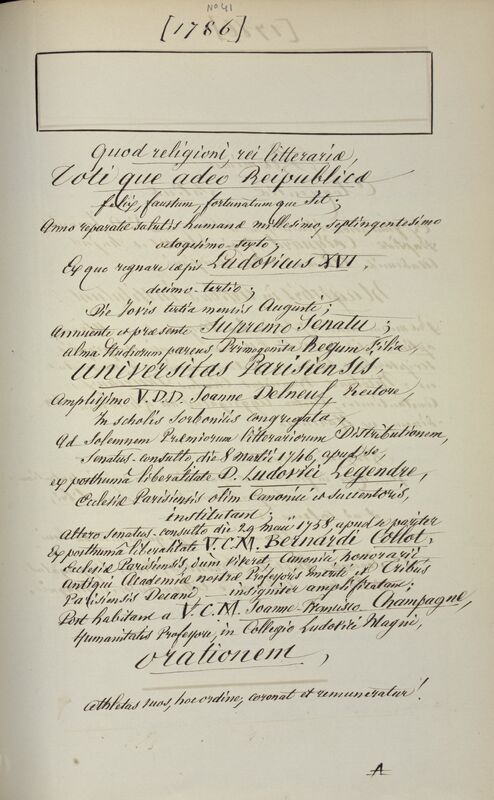 No 41
[1786]
Quod religioni, rei litterariæ,
Toti que adeo Reipublicæ
felix, faustum, fortunatumque sit;
Anno reparatæ salutis humanæ millesimo, septingentesimo
octogesimo-septo;
Ex quo regnare cæpit Ludovicus XVI,
decimo-tertio;
Die Jovis tertia mensis Augusti;
Annuente et præsente Supremo Senatu;
Alma Studiorum parens, Primogenita Regum Filia,
Universitas Parisiensis,
Amplissimo V.D.D. Joanne Delneuf, Rectore,
In scholis Sorbonicis congregata,
Ad Solemnem Præmiorum litterariorum Distributionem,
Senatus-consulto, die 8 martii 1746, apud se,
ex posthuma liberalitate D. Ludovici Legendre,
Ecclesiæ Parisiensis olim Canonici et succentoris,
institutam;
Altero senatus-consulto die 29 maii 1758, apud se pariter
Ex posthuma liberalitate V.C.M. Bernardi Collot,
Ecclesiæ Parisiensis, dum viveret, Canonici, honorarii
Antiqui Academiæ nostræ Professoris Emeriti et Tribus
Parisiensis Decani, insigniter amplificatam;
Post habitam a V.C.M. Joanne-Francisco Champagne,
Humanitatis Professore, in Collegio Ludovici Magni,
orationem,
Athletas suos, hoc ordine, coronat et remuneratur!
A